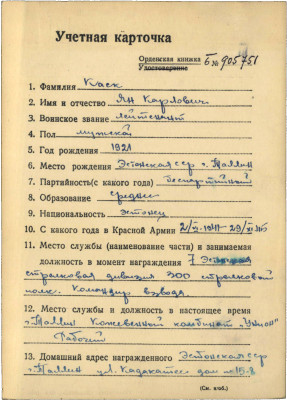 Учетная карточка
Орденская книжка Б № 905751
Удостоверение
1. Фамилия Каск
2. Имя и отчество Ян Карлович
3. Воинское звание лейтенант
4. Пол мужской
5. Год рождения 1921
6. Место рождения Эстонская ССР г. Таллин
7. Партийность (с какого года) беспартийный
8. Образование средн.
9. Национальность эстонец
10. С какого года в Красной Армии
11. Место службы (наименование части) и занимаемая
должность в момент награждения 7 Эстонская
стрелковая дивизия 300 стрелковой
полк. Командир взвода.
12. Место службы и должность в настоящее время
г. Таллин Кожевенной комбинат "Унион"
Рабочий
13. Домашний адрес награжденного Эстонская ССР
г. Таллин ул. дом № 15-8
(См. н/об.)